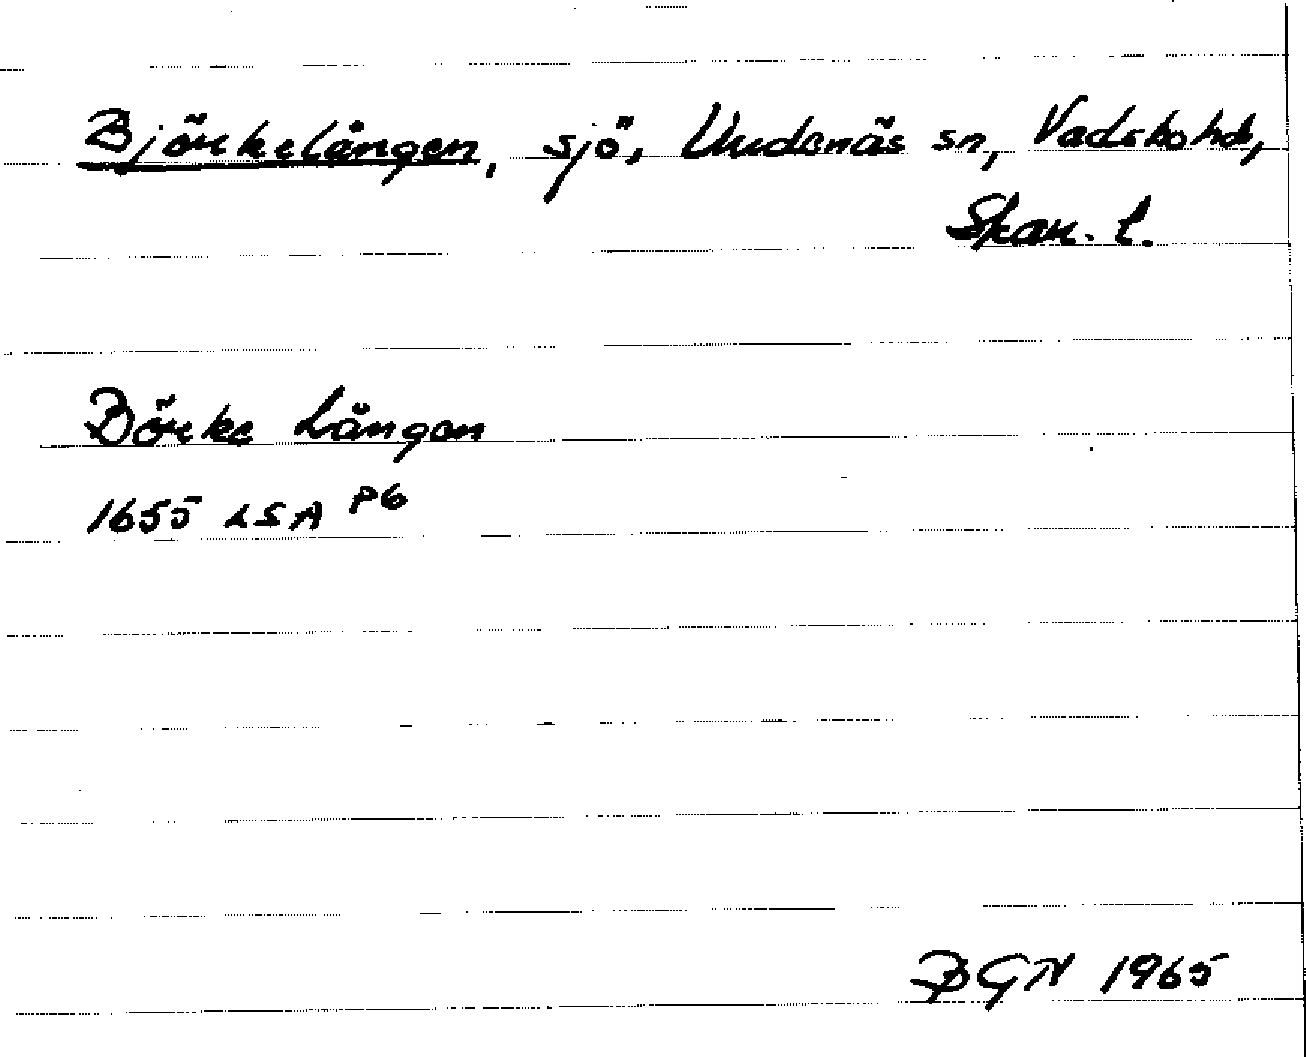 Björkelången, sjö, Undenäs sn, Vadsbo hd,
Skar. l.
Börke Lången
1655 LSA P6
BGN 1965